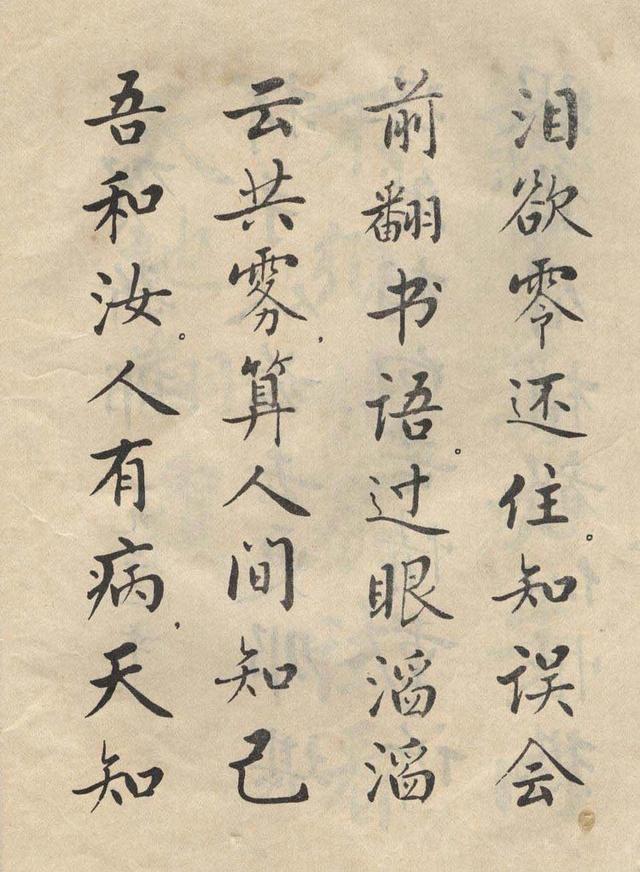 泪欲零还住。知误会
前翻书语。过眼滔滔
云共雾，算人间知己
吾和汝。人有病，天知